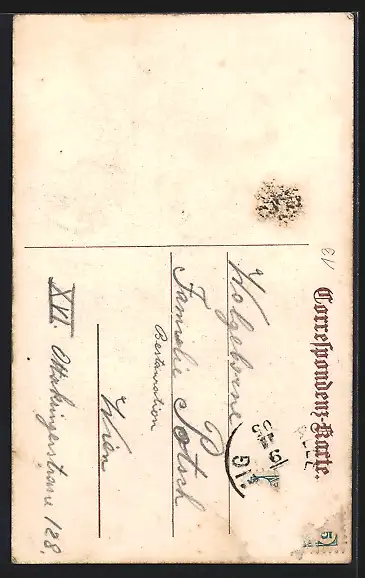 Correspondenz-Karte.
Wolgeborne
Familie Pötsch
Restauration
Wien
XVI. Ottakringerstrasse 128.